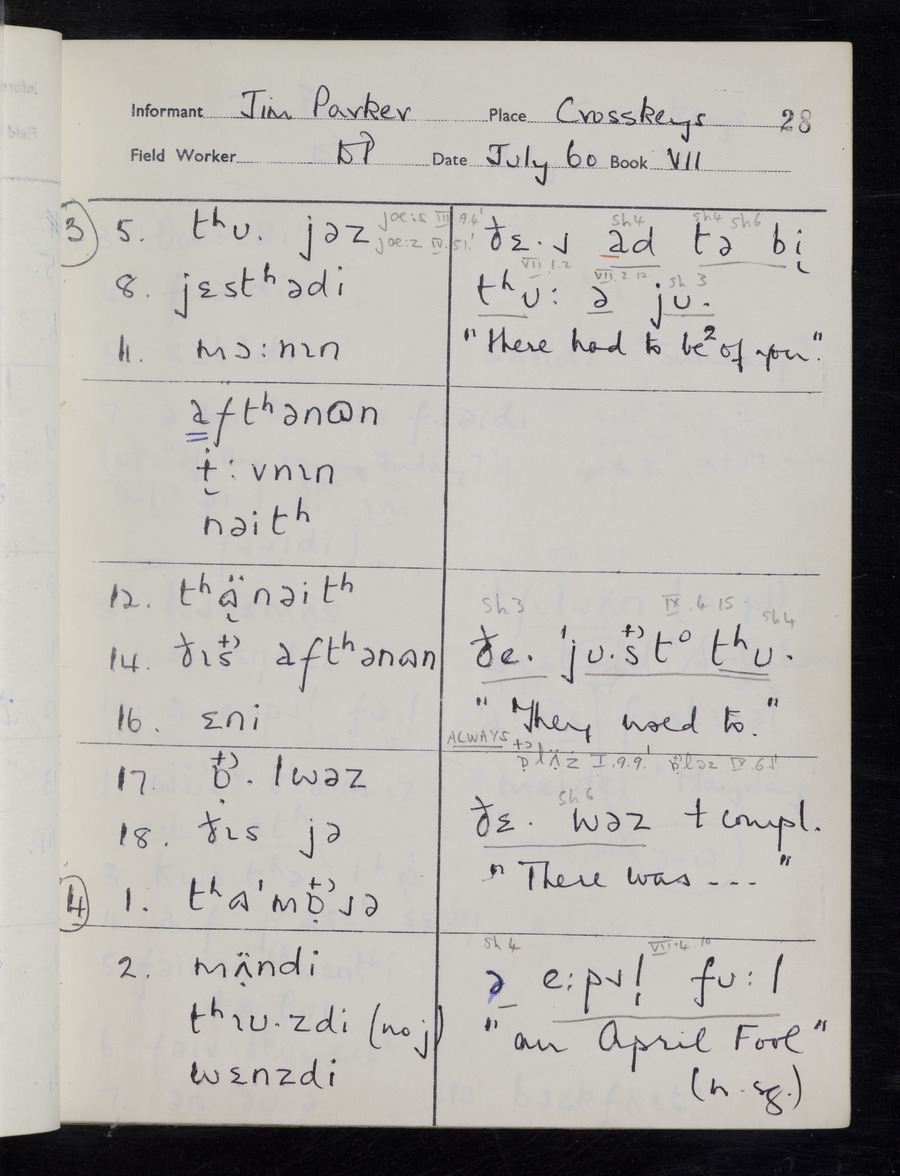 Informant Jim Parker Place Crosskeys 28
Field Worker DP Date July 60 Book VII
③ 5. tʰʊ. jəz
joe:s III 9.4'
joe:z IV.51.'
8. jɛstʰədi
11. mɔ:nɪn
aftʰənɒn
ɨ̣:vnɪn
nəitʰ
12. tʰɑ̈nəitʰ
14. ðɪs aftʰənɒn
16. ɛni
17. ɒ. lwəz
18. ðɪs jə
④ 1. tʰɑ'mɒɹə
2. mʌ̈ndi
tʰɪʊ.zdi (no j)
wɛnzdi
sh4 sh4 sh6
ðɛ.ɹ ad tə bị
VII.1.2 VII.2.12 sh 3
tʰʊ: ə jʊ.
"there had to be² of you".
sh3 IX.4.15 sh4
ðe. 'jʊ.st° tʰʊ.
"They used to."
ALWAYS I.9.9.'
sh6
ðɛ. wəz + compl.
"There was ---"
sh4 VII.4.10
ə e:pɹl̩ fʊ:l
"an April Fool"
(n.sg.)